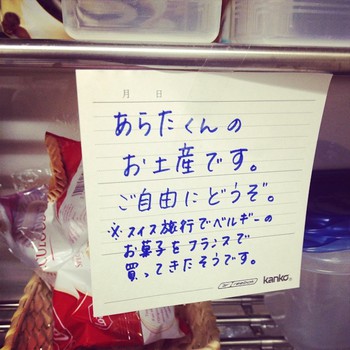 月 日
あらたくんの
お土産です。
ご自由にどうぞ。
※スイス旅行でベルギーの
お菓子をフランスで
買ってきたそうです。
kanko